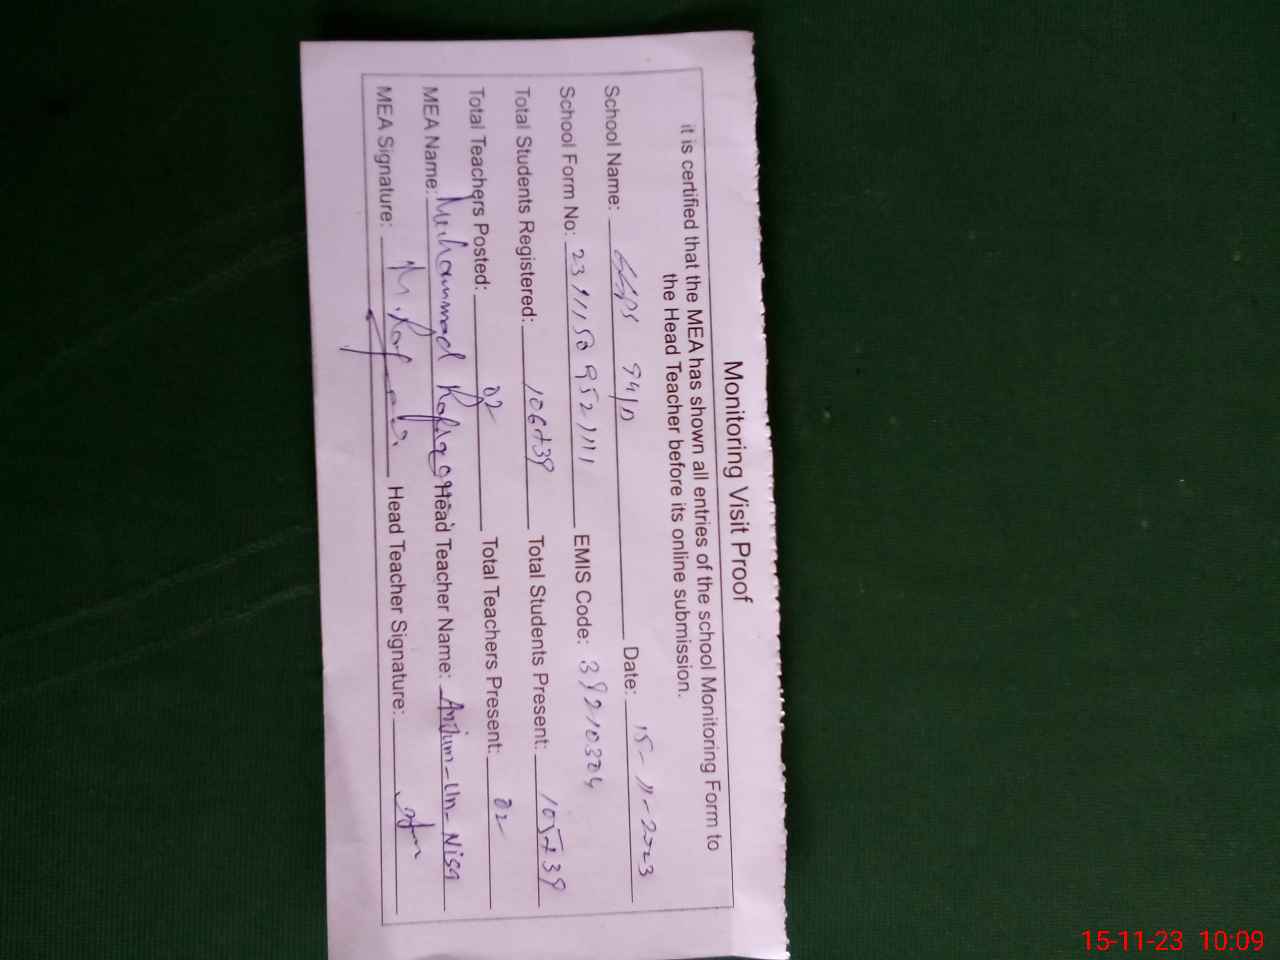 Monitoring Visit Proof
it is certified that the MEA has shown all entries of the school Monitoring Form to
the Head Teacher before its online submission.
School Name: GGPS 94/D Date: 15-11-2023
School Form No: EMIS Code: 39210304
Total Students Registered: 106+39 Total Students Present: 105+39
Total Teachers Posted: 02 Total Teachers Present: 02
MEA Name: Muhammad Rafiq Head Teacher Name: Anjum-Un-Nisa
MEA Signature: Head Teacher Signature:
15-11-23 10:09